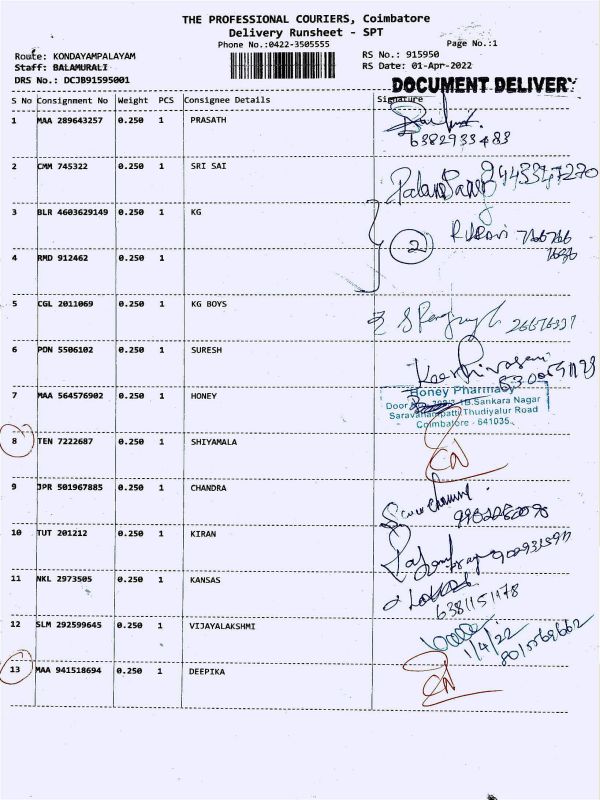 THE PROFESSIONAL COURIERS, Coimbatore
Delivery Runsheet - SPT
Phone No.:0422-3505555
Page No.:1
Route: KONDAYAMPALAYAM
RS No.: 915950
Staff: BALAMURALI
RS Date: 01-Apr-2022
DRS No.: DCJB91595001
DOCUMENT DELIVERY
S No Consignment No Weight PCS Consignee Details Signature
1 MAA 289643257 0.250 1 PRASATH
6382933483
2 CMM 745322 0.250 1 SRI SAI
9443347270
3 BLR 4603629149 0.250 1 KG
2
4 RMD 912462 0.250 1
5 CGL 2011069 0.250 1 KG BOYS
6 PDN 5506102 0.250 1 SURESH
7 MAA 564576902 0.250 1 HONEY
Honey Pharmacy
Door 1B.Sankara Nagar
Saravanampatti Thudiyalur Road
Coimbatore - 641035.
8 TEN 7222687 0.250 1 SHIYAMALA
9 JPR 501967885 0.250 1 CHANDRA
10 TUT 201212 0.250 1 KIRAN
11 NKL 2973505 0.250 1 KANSAS
6381151178
12 SLM 292599645 0.250 1 VIJAYALAKSHMI
1/4/22
8015569662
13 MAA 941518694 0.250 1 DEEPIKA